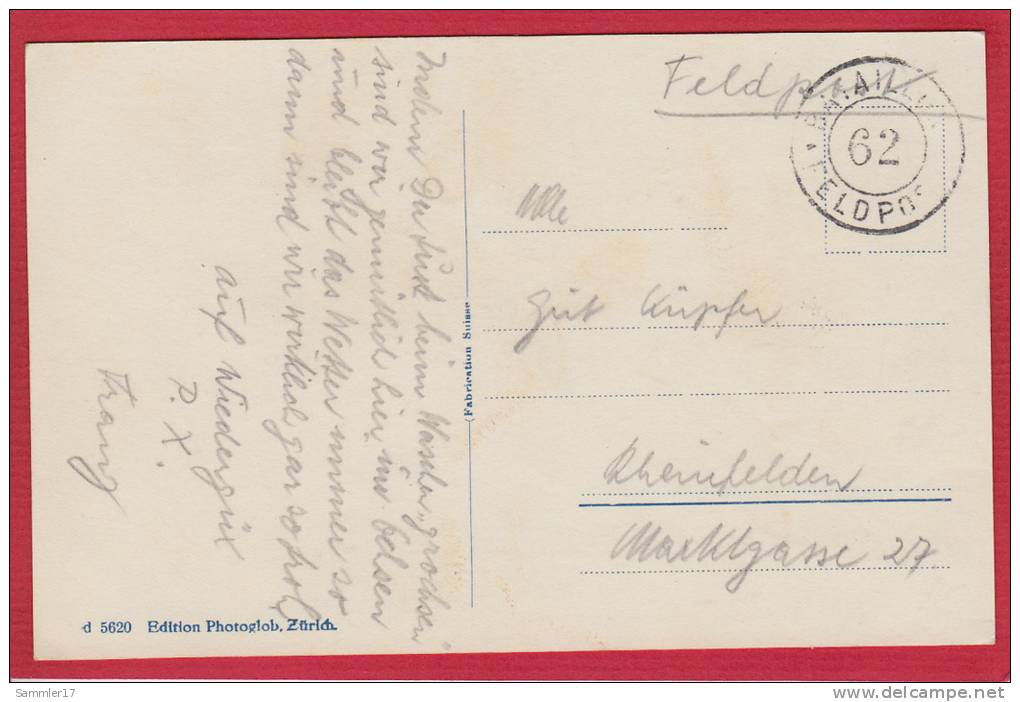 Feldpost
BATAILLON
62
FELDPOST
Mlle
Grit Küpfer
Rheinfelden
Marktgasse 27
(Fabrication Suisse
Indem Du dich beim Waschen „grochsen"
sind wir gemütlich hier im Ochsen
und bleibt das Wetter immer so
dann sind wir wirklich gar so froh
auf Wiedergrüx
P.X.
Franz
d 5620 Edition Photoglob, Zürich.
Sammler17
www.delcampe.net